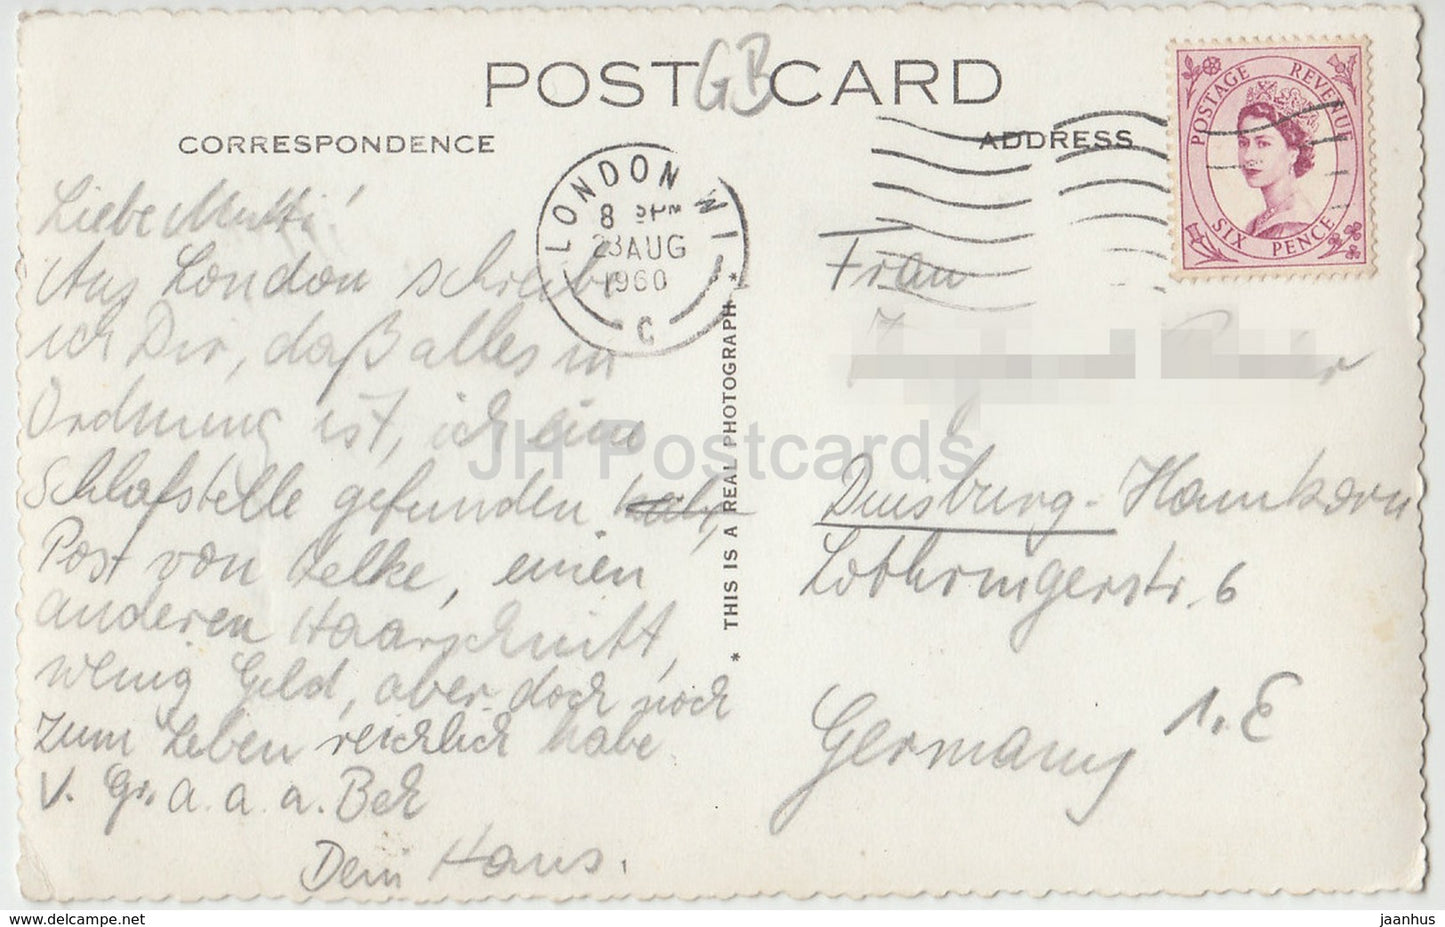 POST GB CARD
CORRESPONDENCE
ADDRESS
POSTAGE REVENUE
SIX PENCE
LONDON W1
8 PM
23 AUG
1960
C
Liebe Mutti!
Aus London schreibe
ich Dir, daß alles in
Ordnung ist, ich eine
Schlafstelle gefunden
Post von Helke, einen
anderen Haarschnitt,
wenig Geld, aber doch noch
zum Leben reichlich habe.
V. Gr. a. a. a. Bek
Dein Hans.
* THIS IS A REAL PHOTOGRAPH *
Frau
Duisburg-Hamborn
Lothringerstr. 6
Germany
1. E
JH Postcards
jaanhus